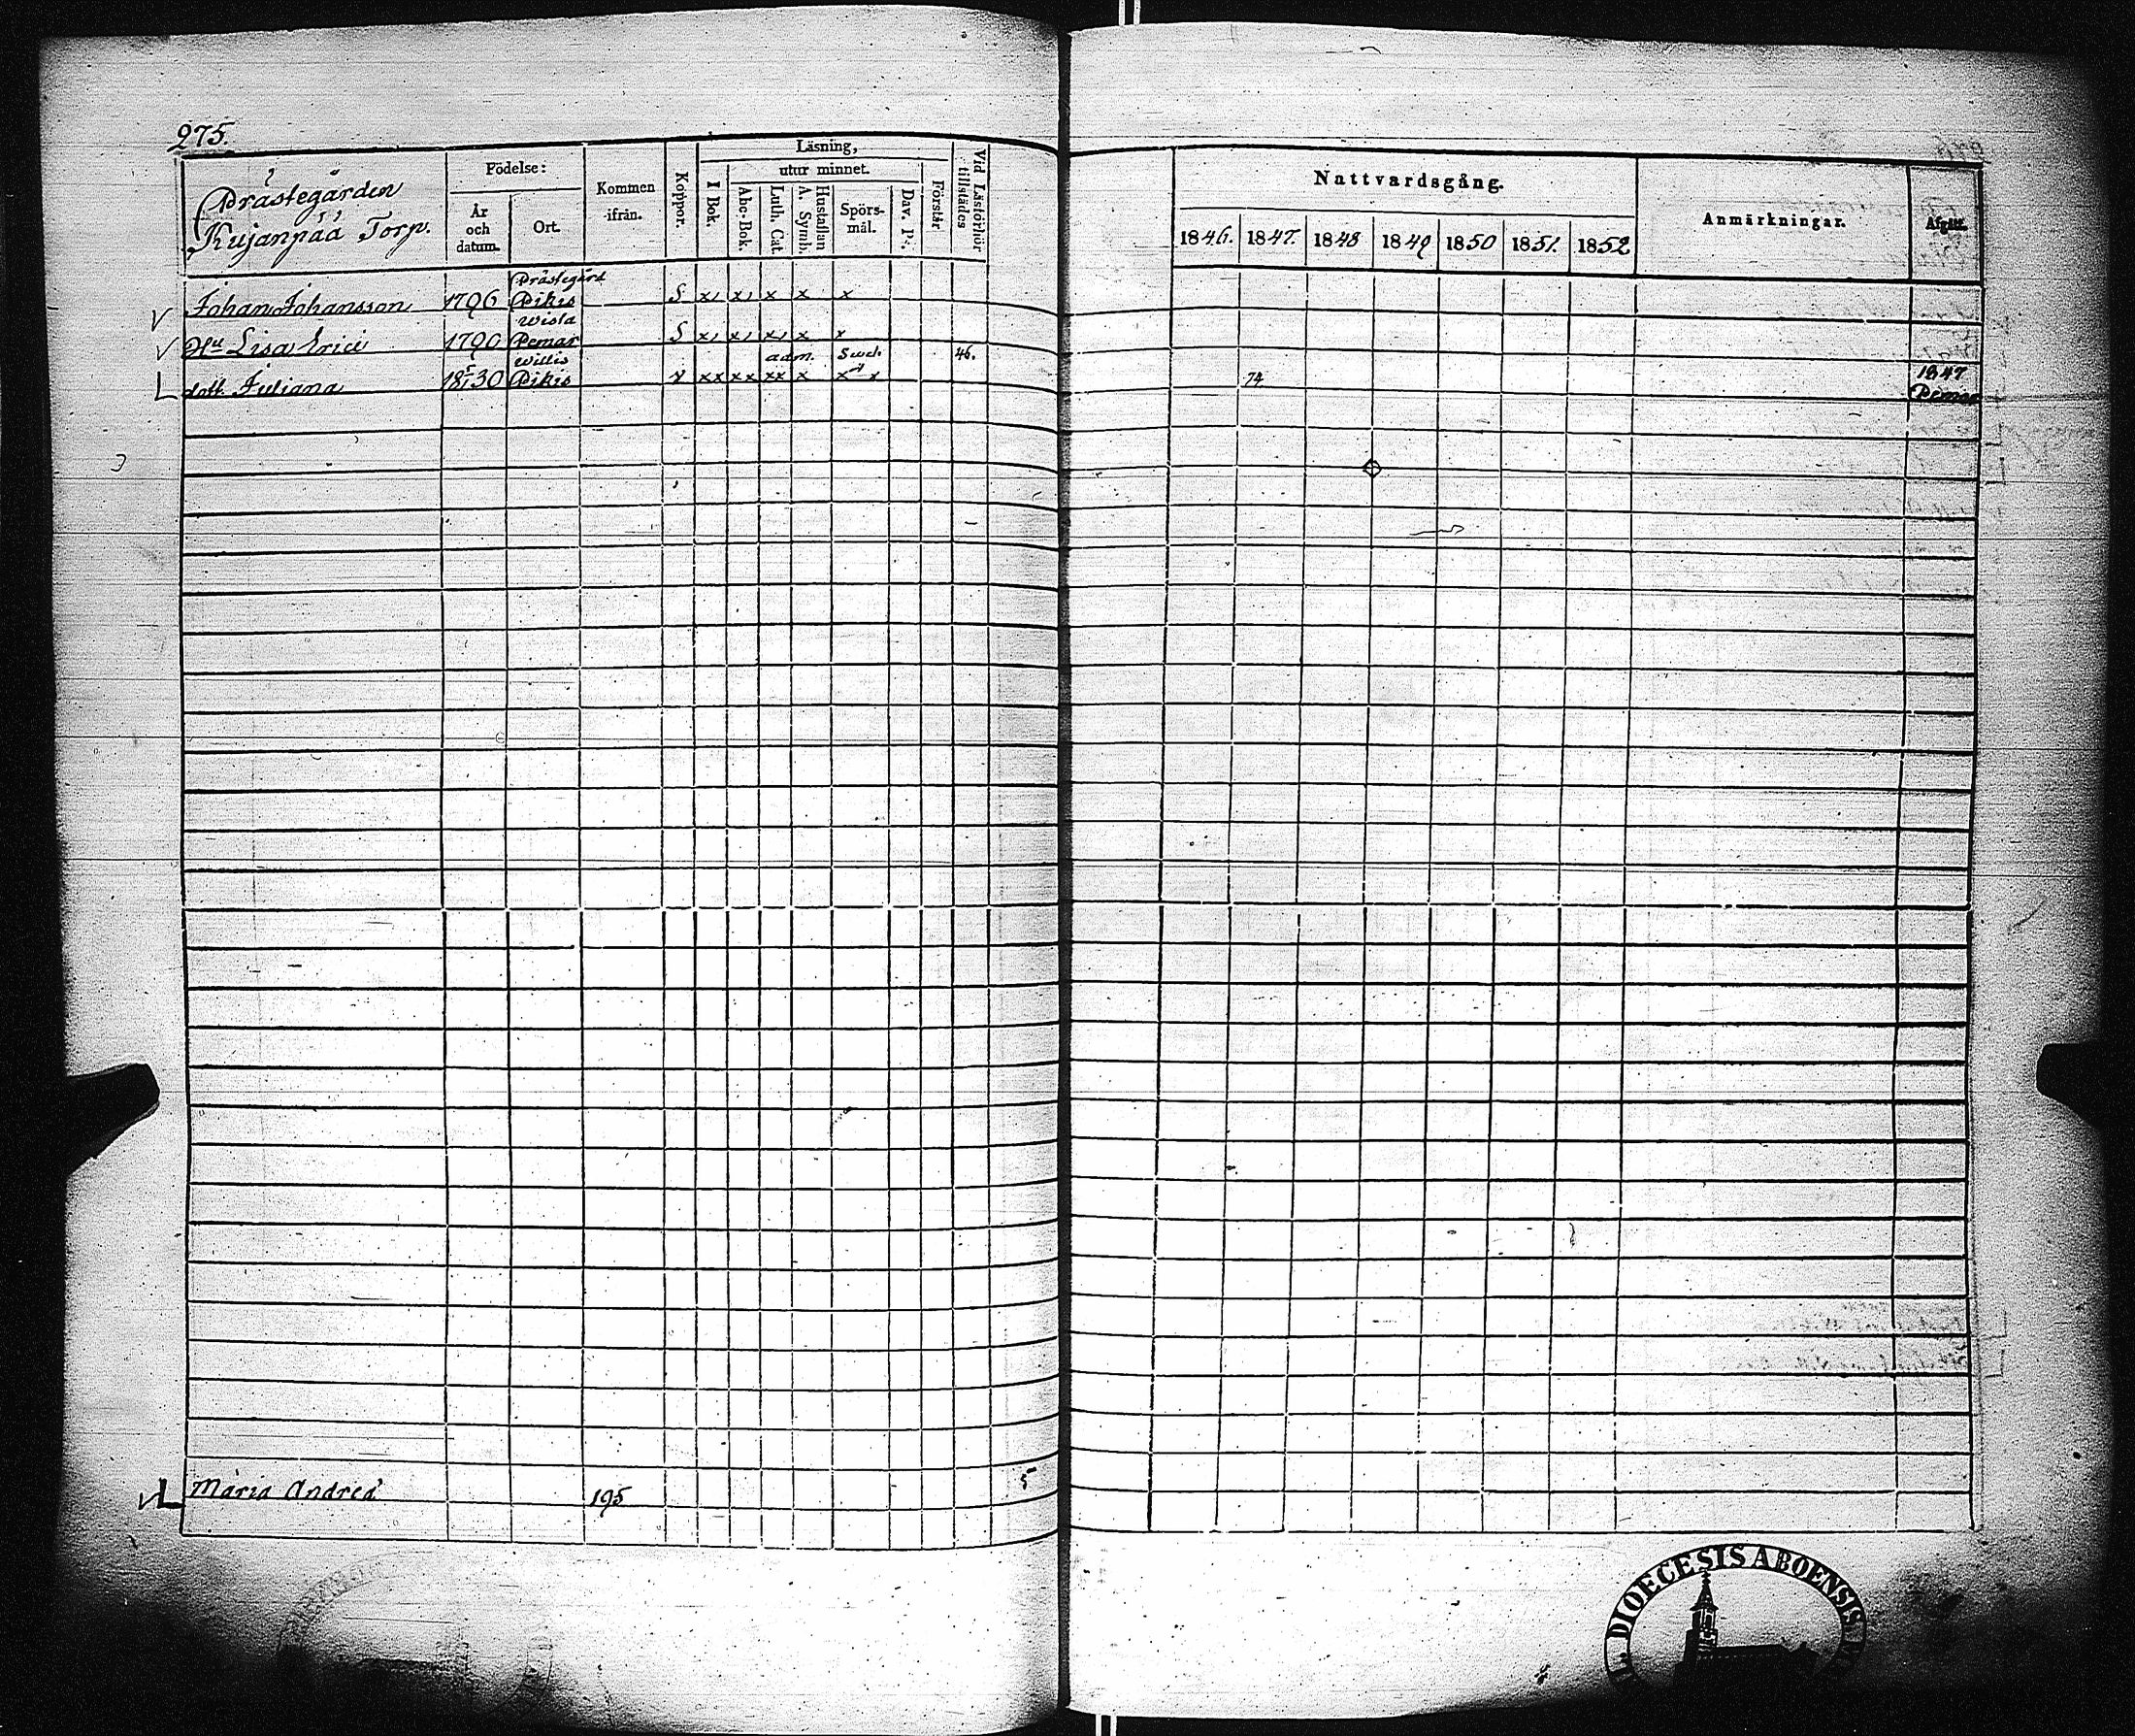 275.
Prästegården
Kujanpää Torp.
Födelse:
År och datum.
Ort.
Kommen -ifrån.
Koppor.
Läsning,
I Bok.
utur minnet.
Abc-Bok.
Luth. Cat.
A. Symb.
Hustaflan
Spörs-mål.
Dav. Ps.
Förstår
Vid Läsförhör tillstädes
Nattvardsgång.
1846. 1847. 1848 1849 1850 1851. 1852
Anmärkningar.
Afgått.
Prästegård
Johan Johansson 1796 Pikis S x x x x x
Wista
Hu Lisa Erici 1790 Pemar S x x x x x
Willis adm. Swch 46. 1847
dott. Juliana 1830 Pikis v xx xx xx x x x 74 Pemar
5
Maria Andreä 195
DIOECESIS ABOENSIS